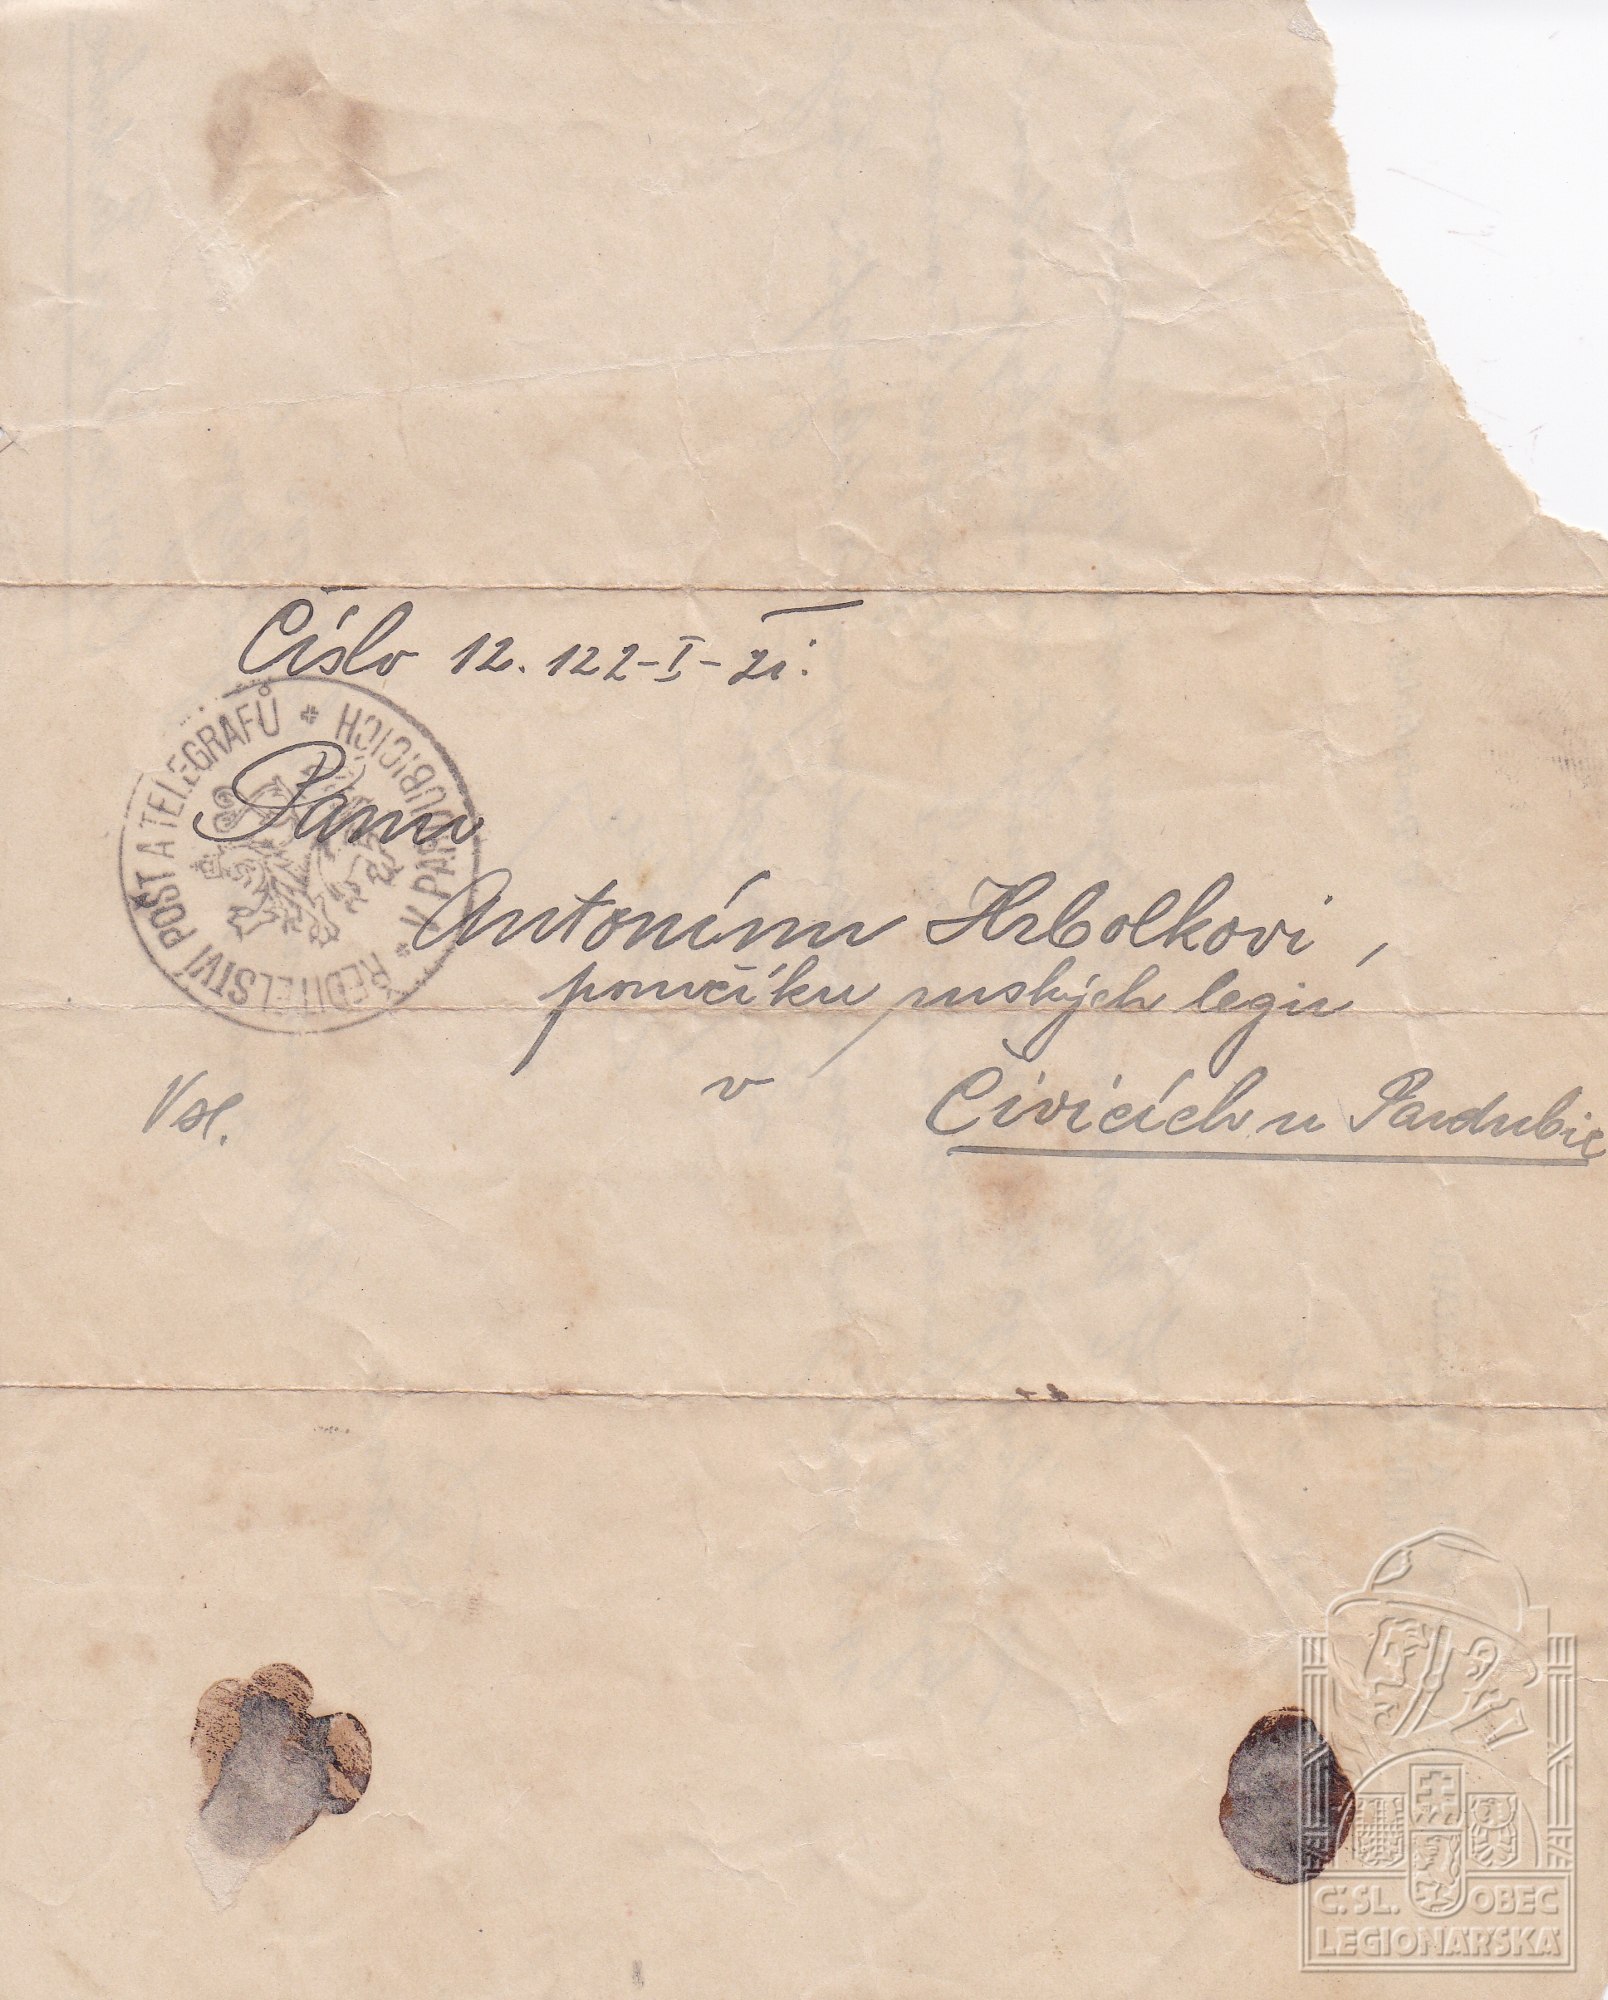 Číslo 12.122-I-zi.
ŘEDITELSTVÍ POŠT A TELEGRAFŮ * V PARDUBICÍCH *
Panu
Antonínu Hrbolkovi,
poručíku ruských legií
v Čivicích u Pardubic
Vsl.
Č.SL. OBEC
LEGIONÁŘSKÁ